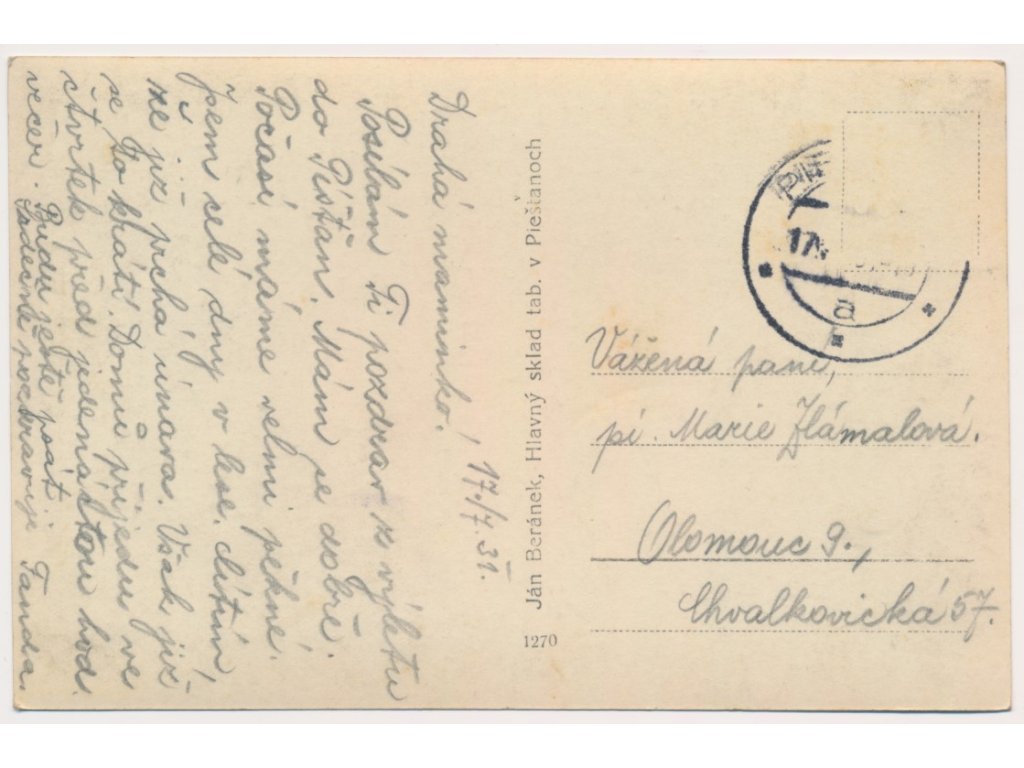 17./7.31.
Drahá maminko!
Posílám Ti pozdrav z výletu
do Píšťan. Mám se dobře.
Počasí máme velmi pěkné.
Jsem celé dny v lese. Cítím,
že již prchá únava. Však již
se to krátí. Domů přijedu ve
čtvrtek před jedenáctou hod.
večer. Budu ještě psát.
Srdečně pozdravuje Fanda.
Ján Beránek, Hlavný sklad tab. v Piešťanoch
1270
17.
a
Vážená paní,
pí. Marie Zlámalová.
Olomouc 9.,
Chvalkovická 57.